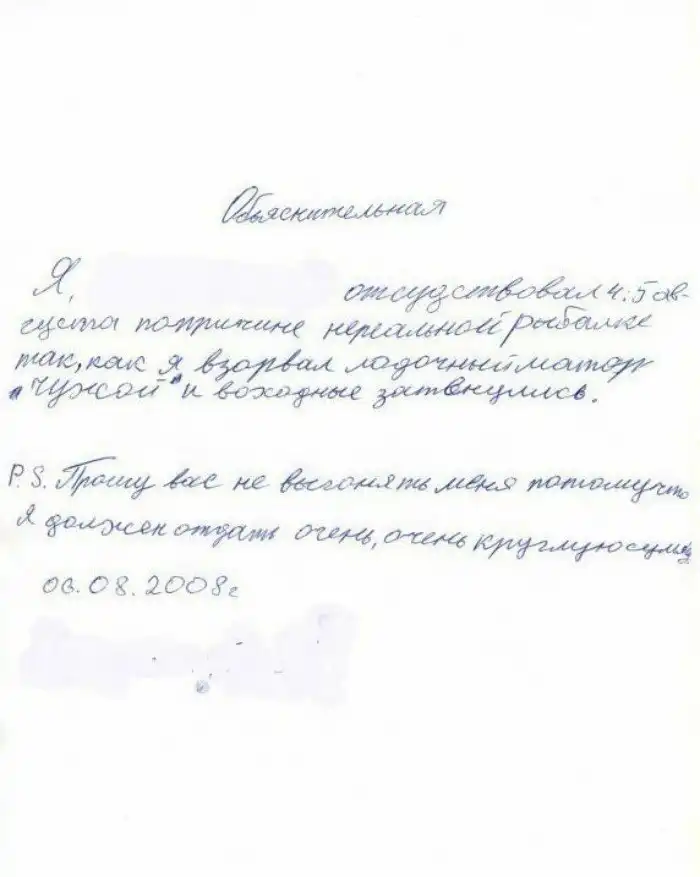 Объяснительная
Я, отсудствовал 4: 5 ав-
густа попричине нереальной рыбалке
так, как я взорвал лодочный матор
"Чужой" и воходные затянулись.
P.S. Прошу вас не выгонять меня потомучто
я должен отдать очень, очень круглую сумму
06.08.2008г